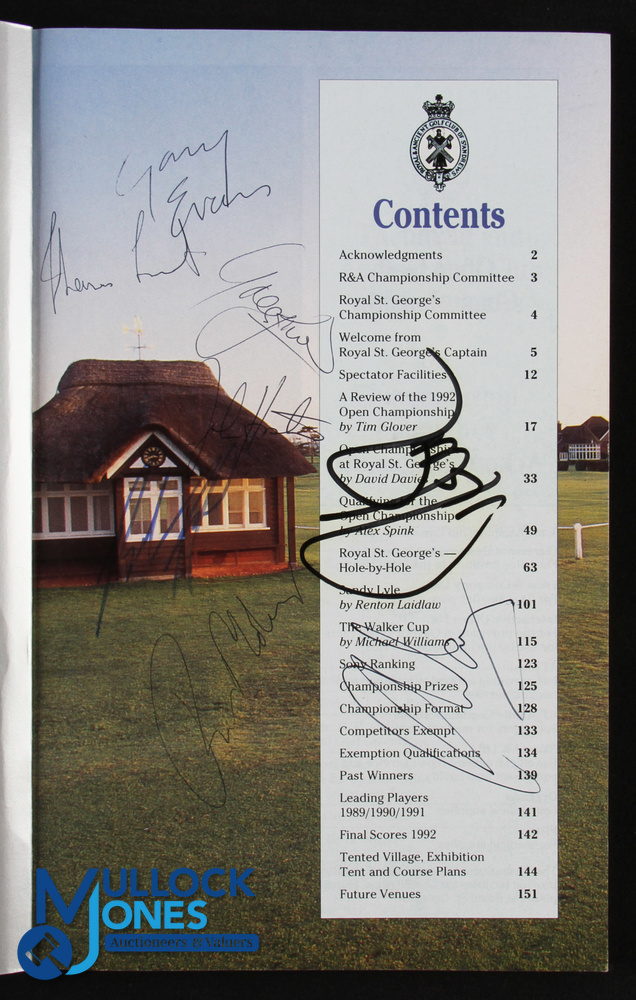 Gary
Evans
ROYAL & ANCIENT GOLF CLUB OF ST ANDREWS
Contents
Acknowledgments 2
R&A Championship Committee 3
Royal St. George's
Championship Committee 4
Welcome from
Royal St. George's Captain 5
Spectator Facilities 12
A Review of the 1992
Open Championship
by Tim Glover 17
Open Championship
at Royal St. George's
by David Davies 33
Qualifying for the
Open Championship
by Alex Spink 49
Royal St. George's —
Hole-by-Hole 63
Sandy Lyle
by Renton Laidlaw 101
The Walker Cup
by Michael Williams 115
Sony Ranking 123
Championship Prizes 125
Championship Format 128
Competitors Exempt 133
Exemption Qualifications 134
Past Winners 139
Leading Players
1989/1990/1991 141
Final Scores 1992 142
Tented Village, Exhibition
Tent and Course Plans 144
Future Venues 151
MULLOCK
JONES
Auctioneers & Valuers